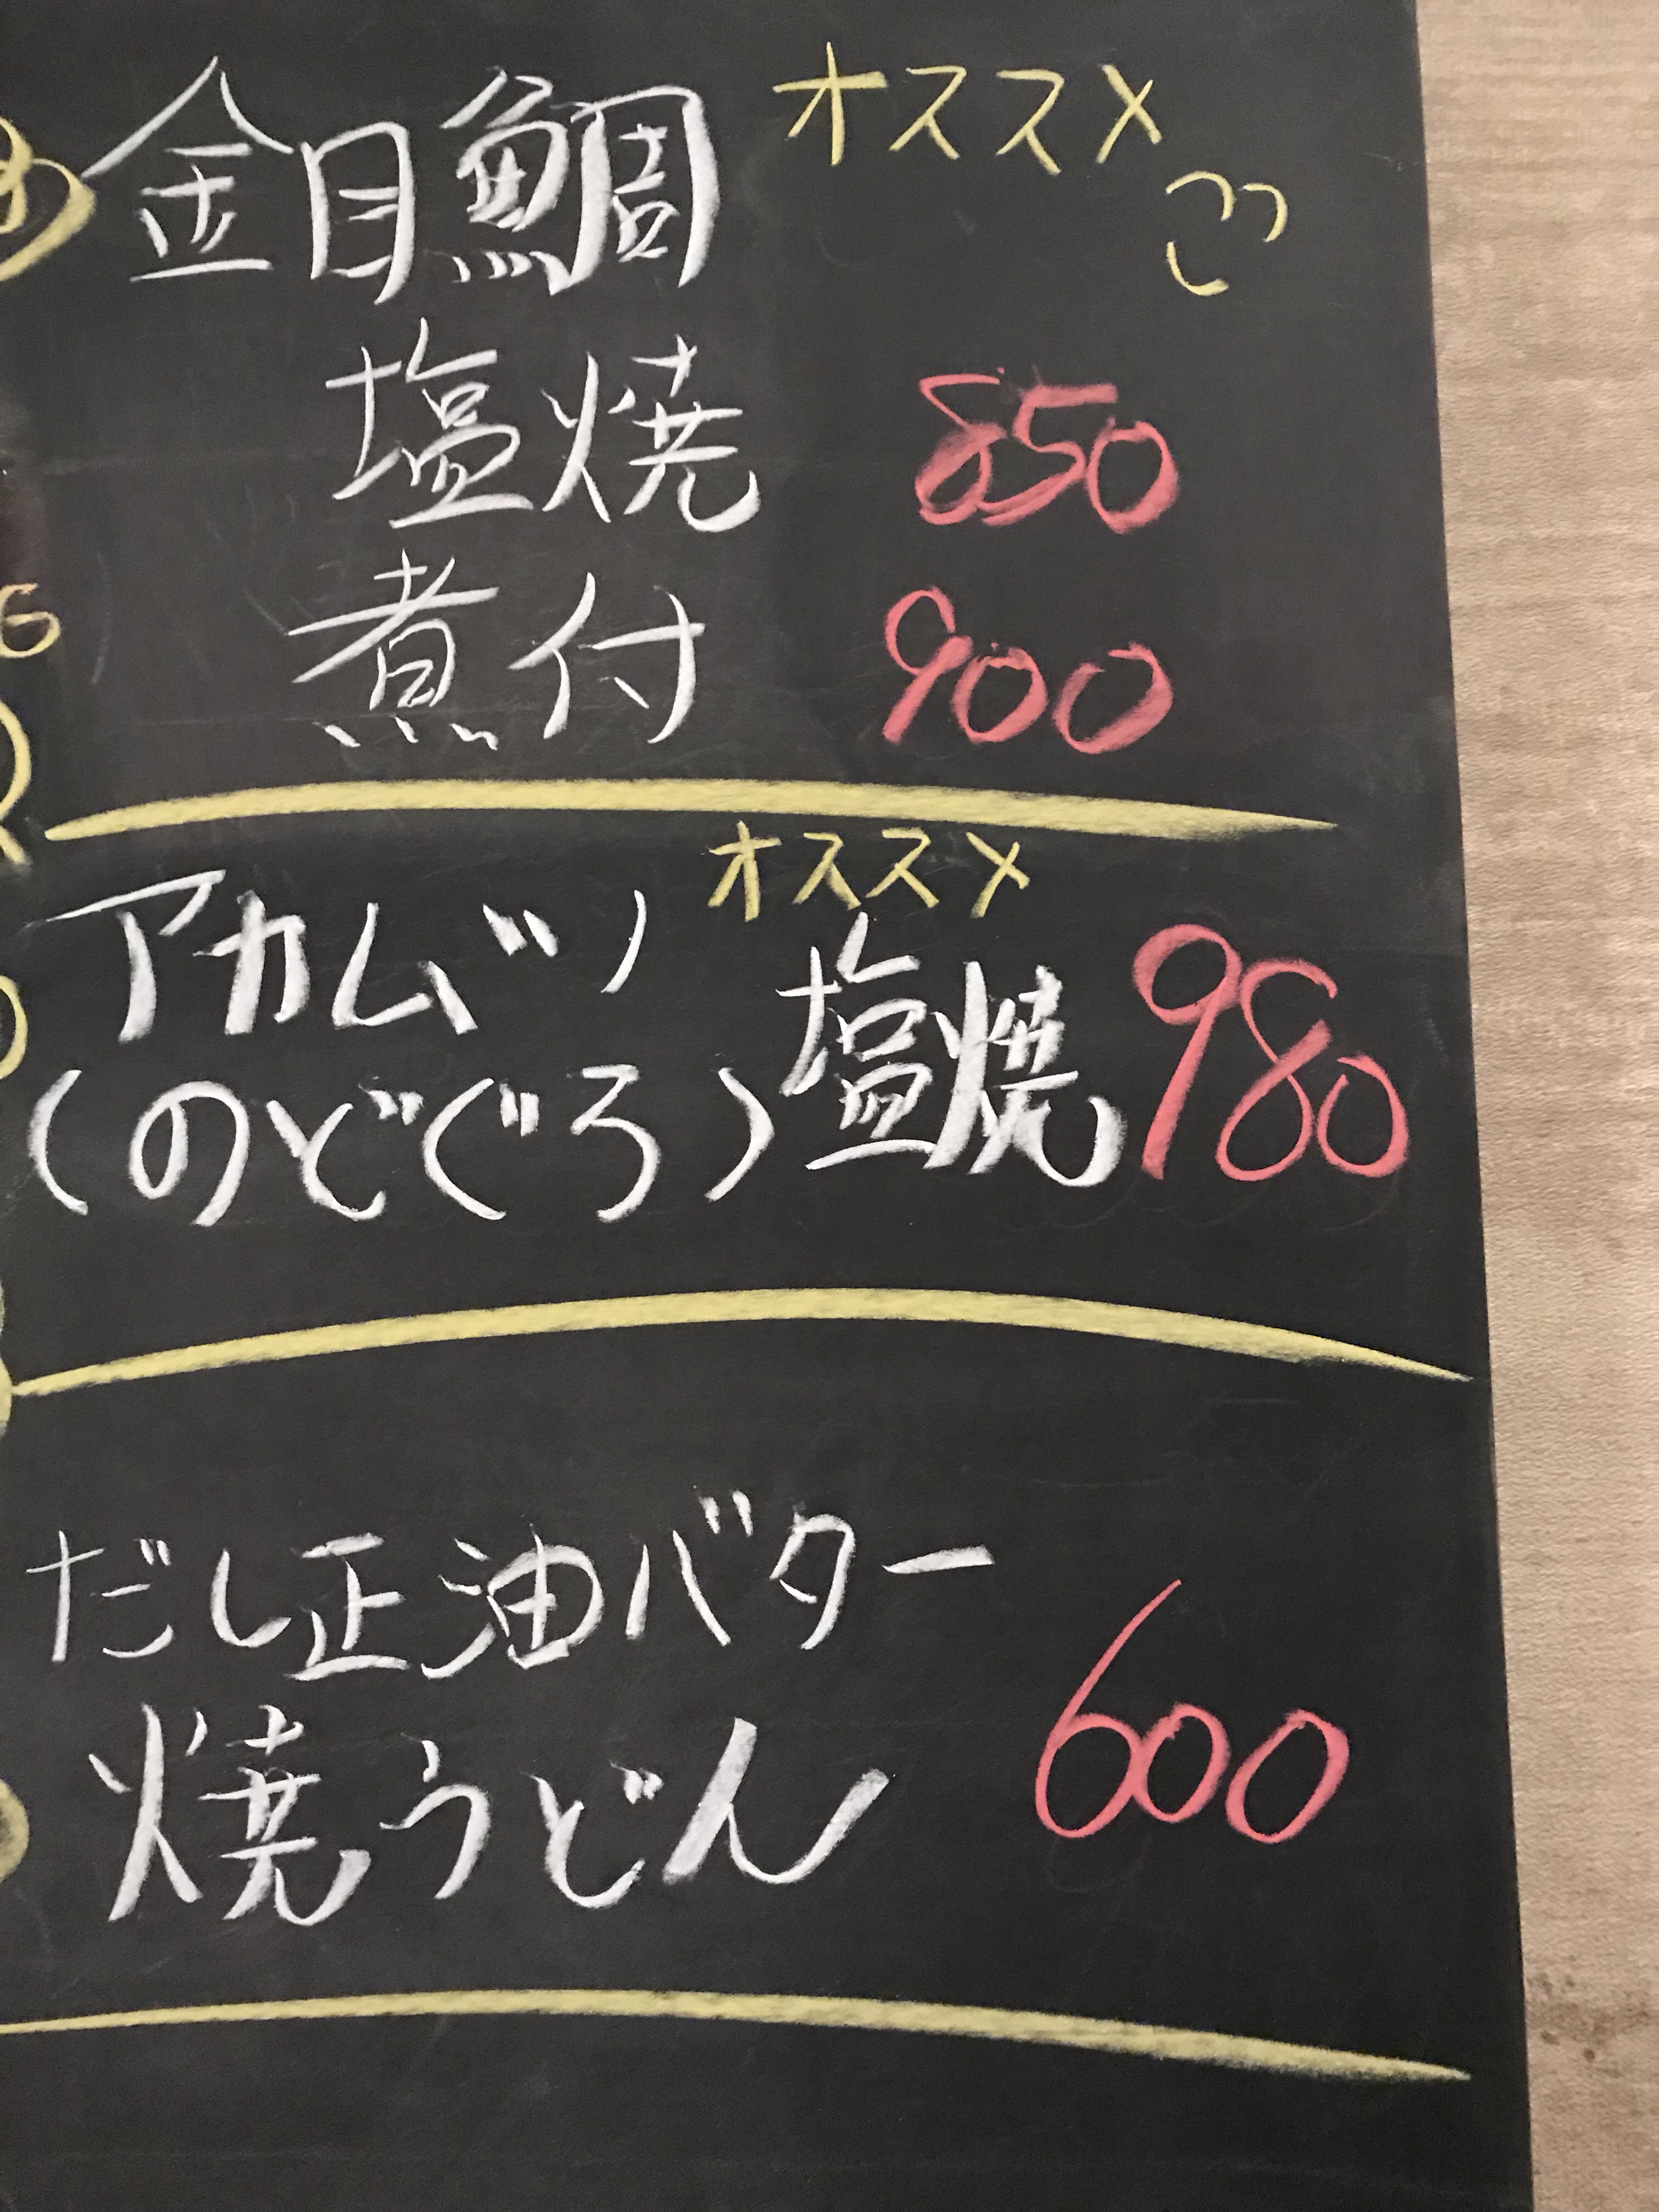 金目鯛 オススメ
塩焼 850
煮付 900
オススメ
アカムツ 塩焼 980
(のどぐろ)
だし正油バター
焼うどん 600